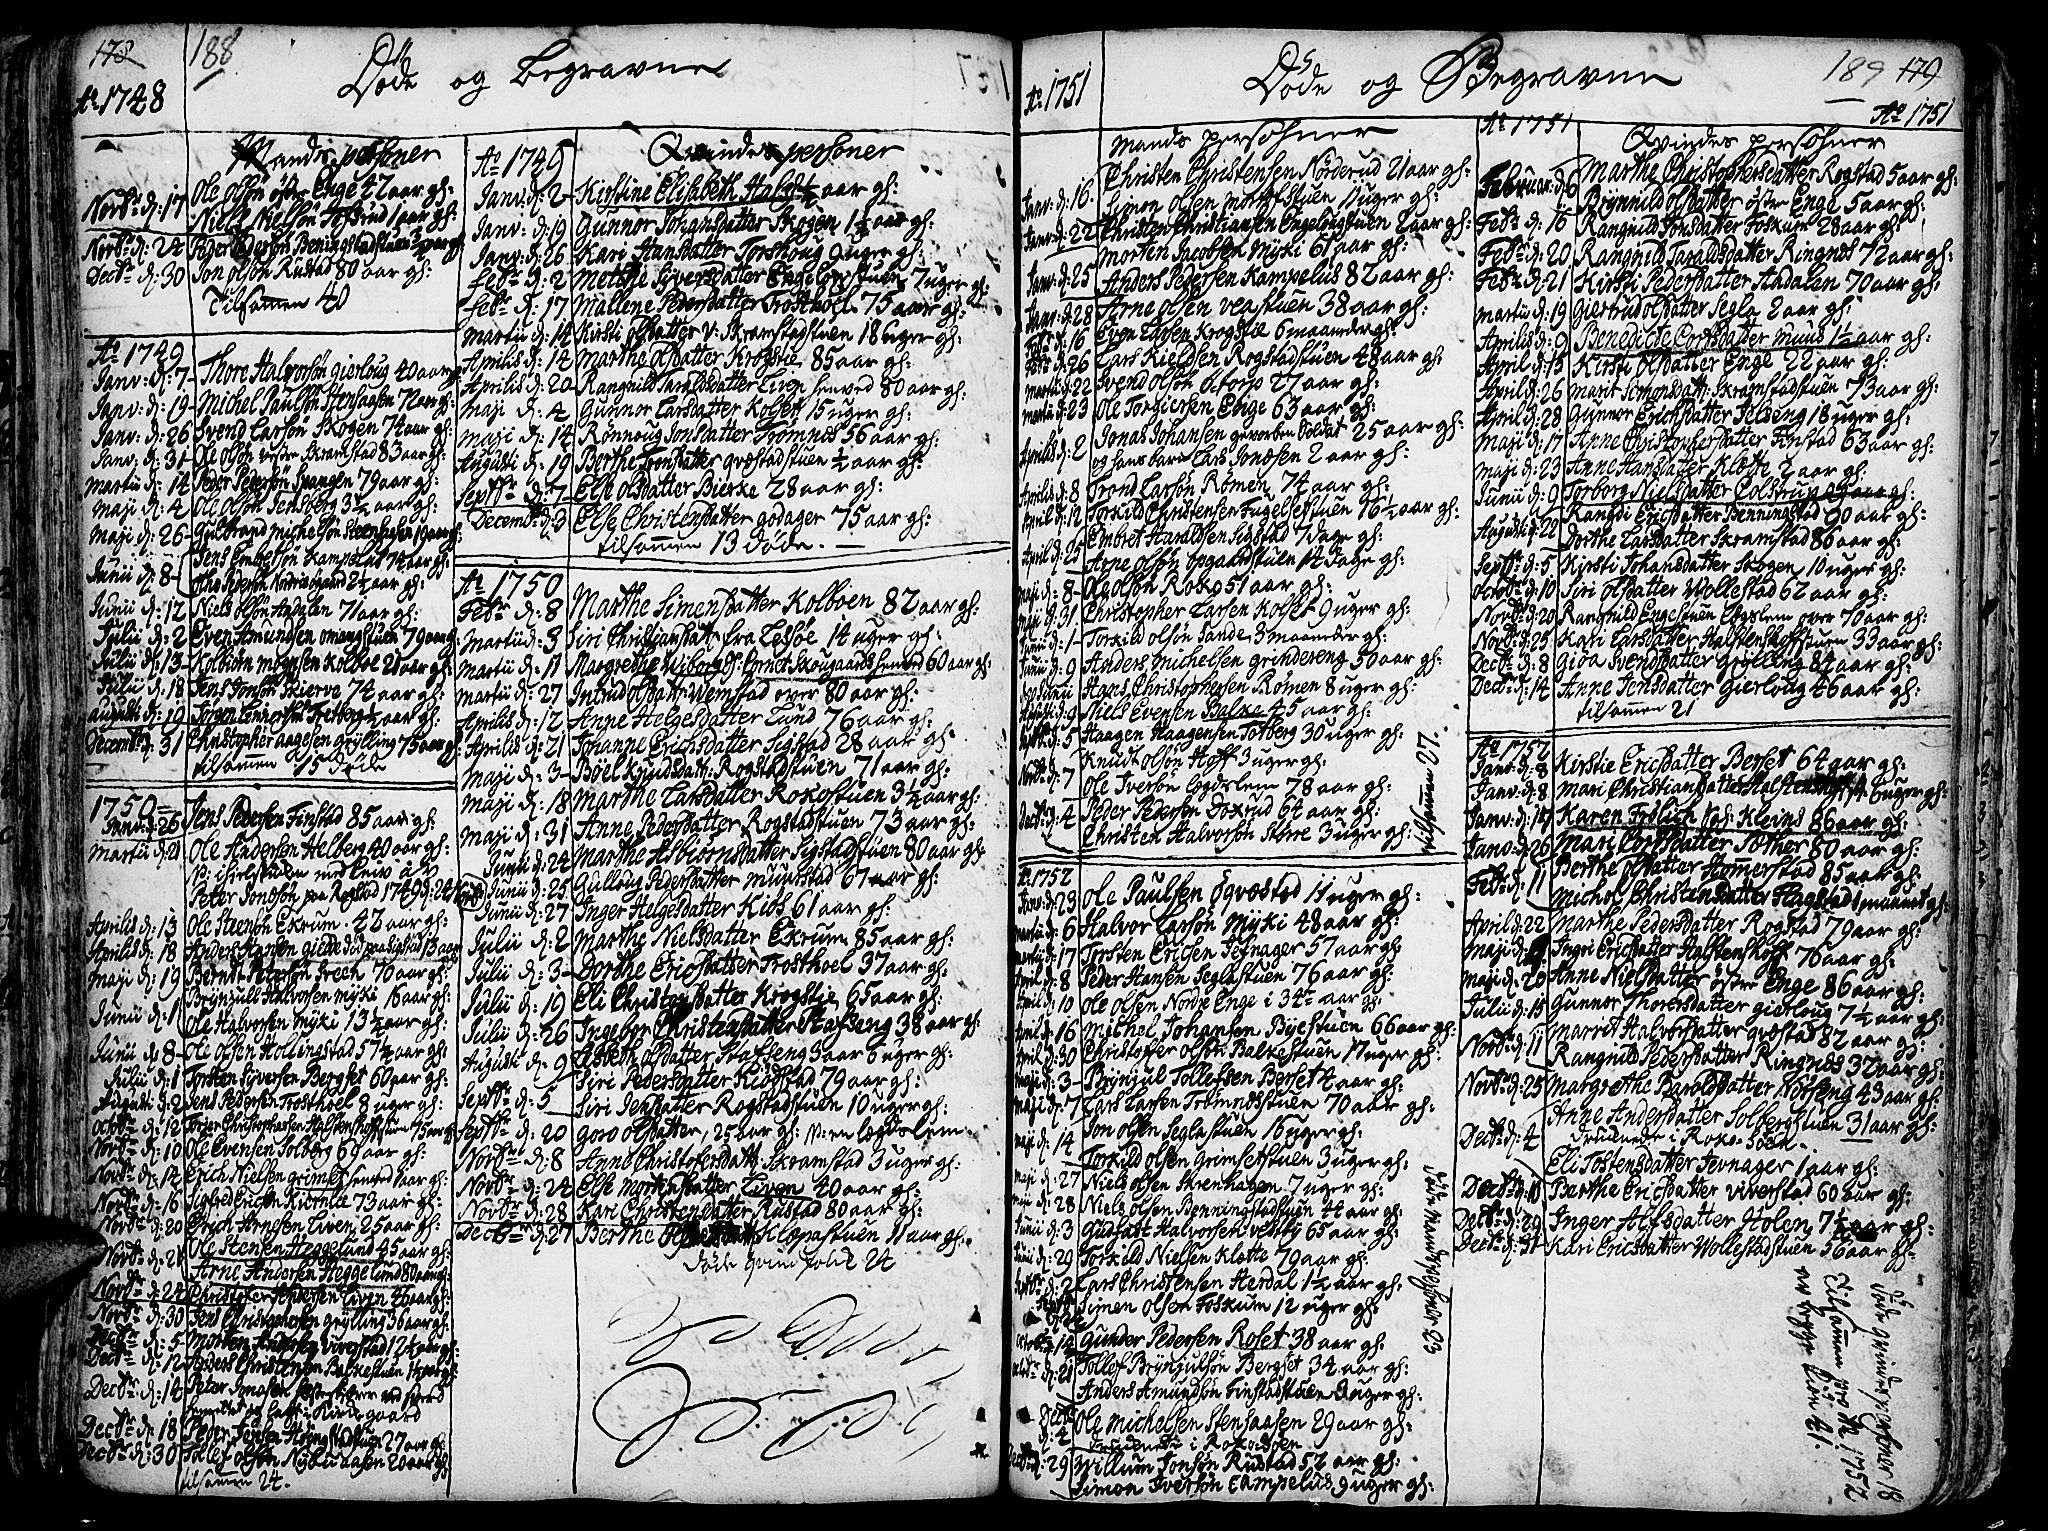 178 188
Døde og Begravne
Ao 1748
Mands personer
Novbr d: 17 Ole Olsön östre Enge 42 aar gl:
Niels Nielsön 1 aar gl:
Novbr d: 24 Peder Pedersön Beningstadstuen
Decbr d: 30 Jon Olsön Rustad 80 aar gl:
Tilsamen 40
Ao 1749
Janv: d: 7 Thore Halvorsön Gierloug 40 aar
Janv: d: 19 Michel Paulsön Stensaasen 72 aar gl:
Janv: d: 26 Svend Larsön Skogen 74 aar gl:
Janv: d: 31 Ole Olsön vestre Skramstad 83 aar gl:
Martii d: 14 Peder Pedersön Spangen 79 aar gl:
Maji d: 4 Ole Olsön Jensberg 3 1/2 aar gl:
Maji d: 26 Gulbrand Michelsön Steenhusen 19 aar gl:
Junii d: 8 Jens Embretsön Kampelad 74 aar gl:
Otho Pedersön 2 1/2 aar gl:
Junii d: 12 Niels Olsön Aadalen 71 aar gl:
Julii d: 2 Even Amundsen omangstuen 79 aar gl:
Julii d: 13 Kolbiörn Mogensen Kolboe 21 aar gl:
Julii d: 18 Jens Jonsön Skierve 74 aar gl:
Augusti d: 19 Jörgen 1/2 aar gl:
Decembr d: 31 Christopher Aagesen Grylling 75 aar gl:
tilsamen 15 döde
1750
Janv: d: 26 Jens Pedersen Finstad 85 aar gl:
Martii d: 21 Ole Andersen Helberg 40 aar gl:
Peter Jonösön paa Rogstad 1749 d: 24
Aprilis d: 13 Ole Steensön Ekrum 42 aar gl:
Aprilis d: 18 Anders Hansen 13 aar
Maji d: 19 Bernt Petersön Frech 76 aar gl:
Brynjull Halvorsen Myki 16 aar gl:
Junii d: 1 Ole Halvorsen Myki 13 1/2 aar gl:
Junii d: 8 Ole Olsen Hollingstad 57 1/2 aar gl:
Julii d: 1 Torsten Syversen Bergset 60 aar gl:
Augusti d: 2 Jens Pedersen Trosthoel 8 uger gl:
Octbr d: 12 Christophersen Halstenshofstuen 75 aar gl:
Novbr d: 10 Ole Evensen Solberg 69 aar gl:
Novbr d: 14 Erich Nielsen Grimset 1 aar gl:
Novbr d: 16 Sigfred Ericsen 73 aar gl:
Novbr d: 20 Erich Arnesen Liven 25 aar gl:
Ole Stensen Heggelund 45 aar gl:
Novbr d: 21 Arne Andersen Heggelund 80 aar gl:
Novbr d: 24 Christofer Andersen Liven 46 aar gl:
Novbr d: 30 Jens Christophersen Grylling 36 aar gl:
Decbr d: 5 Morten Andersen Viverstad 12 1/2 aar gl:
Decbr d: 12 Anders Christensen Balkestuen
Decbr d: 14 Peter Jonasen
Decbr d: 18 Peder Jensen 27 aar gl:
Decbr d: 30 Tollef Olsön Nyhuusen 20 aar gl:
tilsamen 24.
Qvindes personer
Ao 1749
Janv: d: 2 Kirstine Elisabeth Hald 1/2 aar gl:
Janv: d: 19 Gunnor Johansdatter Skogen 1 1/2 aar gl:
Janv: d: 26 Kari Hansdatter Torshoug 9 uger gl:
Febr d: 2 Methe Syversdatter Engelongstuen 7 uger gl:
Febr d: 17 Mallene Pedersdatter Trosthoel 75 aar gl:
Martii d: 14 Kirsti Olsdatter v: Skramstadstuen 18 uger gl:
Aprilis d: 14 Marthe Olsdatter Krogstie 85 aar gl:
Aprilis d: 20 Rangnild Taraldsdatter Liven 80 aar gl:
Maji d: 4 Gunnor Larsdatter Kolset 15 uger gl:
Maji d: 14 Rönnoug Jonsdatter Trömnes 56 aar gl:
Augusti d: 19 Berthe Qvæstadstuen 1/2 aar gl:
Septbr d: 7 Else Olsdatter Bierke 28 aar gl:
Decembr d: 3 Else Christensdatter Godager 75 aar gl:
tilsammen 13 döde.
Ao 1750
Febr d: 8 Marthe Simensdatter Kolboen 82 aar gl:
Martii d: 3 Siri Christiansdatt: fra Lesöe 14 uger gl:
Martii d: 11 Margrethe Wiborg Cornet Skougaards 60 aar gl:
Martii d: 27 Intrud Olsdatter Wemstad over 80 aar gl:
Aprilis d: 12 Anne Helgesdatter Lund 76 aar gl:
Aprilis d: 21 Johanne Erichsdatter Sigstad 28 aar gl:
Maji d: 3 Böel Knudsdatt: Rogstadstuen 71 aar gl:
Maji d: 18 Marthe Larsdatter Rokostuen 3 1/2 aar gl:
Maji d: 31 Anne Pedersdatter Rogstadstuen 73 aar gl:
Junii d: 24 Marthe Asbiörnsdatter Sigstadstuen 80 aar gl:
Junii d: 25 Gulloug Pedersdatter 67 aar gl:
Junii d: 27 Inger Helgesdatter Kiös 61 aar gl:
Julii d: 2 Marthe Nielsdatter Ekrum 85 aar gl:
Julii d: 3 Dorthe Ericsdatter Trosthoel 37 aar gl:
Julii d: 19 Eli Christensdatter Krogstie 65 aar gl:
Julii d: 26 Ingebor Christensdatter Stafseng 38 aar gl:
Augusti d: 9 Olsdatter Stafseng 3 aar 6 uger gl:
Siri Pedersdatter Kiöfstad 79 aar gl:
Septbr d: 5 Siri Jensdatter Rogstadstuen 10 uger gl:
Septbr d: 20 Goro Olsdatter, 25 aar gl: en Logdslem
Novbr d: 8 Anne Christofersdatt: Skramstad 3 uger gl:
Novbr d: 24 Else Mortensdatter Liven 40 aar gl:
Novbr d: 28 Kari Christensdatter Rustad 80 aar gl:
Decbr d: 27 Berthe Kloepastuen 11 aar gl:
Døde Qvindfolck 24
Døde og Begravne
189 179
Ao 1751
Mands persohner
Janv: d: 16 Christen Christensen Nörderud 21 aar gl:
Simon Olsen Mortstuen 11 uger gl:
Janv: d: 22 Christen Christiansen Engelongstuen 2 aar gl:
Morten Jacobsen Myki 61 aar gl:
Janv: d: 25 Anders Pedersen Kampelus 82 aar gl:
Janv: d: 28 Arne Olsen Veastuen 38 aar gl:
Febr d: 16 Even Larsen Krogstie 6 maaneder gl:
Febr d: 26 Lars Kielsen Rogstadstuen 48 aar gl:
Martii d: 22 Svend Olsön Alstorp 27 aar gl:
Martii d: 23 Ole Torgiersen Enge 63 aar gl:
Aprilis d: 2 Jonas Johansen gevorben Soldat 25 aar gl:
og hans barn Lars Jonæsen 2 aar gl:
Aprilis d: 8 Trond Larsön Römen 74 aar gl:
April d: 12 Torkild Christensen Fugelsetstuen 16 1/2 aar gl:
April d: 25 Embret Haraldsen Sigstad 7 dage gl:
Arne Olsön Opgaardstuen 14 dage gl:
Maji d: 8 Ole Olsön Roko 51 aar gl:
Maji d: 31 Christopher Larsen Kolset 9 uger gl:
Junii d: 1 Torkild Olsön Sande 3 maaneder gl:
Junii d: 9 Anders Michelsen Grindereng 50 aar gl:
Hans Christophersen Römen 8 uger gl:
d: 9 Niels Evensen Balke 45 aar gl:
d: 5 Haagen Haagensen Totberg 30 uger gl:
Knudt Olsön Hoff 3 uger gl:
Novbr d: 7 Ole Iversön Logdslem 78 aar gl:
Decbr d: 4 Peder Pedersön Doxrud 64 aar gl:
Christen Halvorsön Storre 3 uger gl:
tilsammen 27.
Ao 1752
Janv: d: 23 Ole Paulsen Øgvæstad 11 uger gl:
Martii d: 6 Halvor Larsön Myki 48 aar gl:
Martii d: 17 Torsten Ericsen Jevnager 57 aar gl:
April d: 8 Peder Hansen Seglastuen 76 aar gl:
April d: 10 Ole Olsen Nordre Enge i 34te aar gl:
April d: 16 Michel Johansen Byestuen 66 aar gl:
April d: 30 Christoffer Olsen Balkestuen 17 uger gl:
Maji d: 3 Brynjul Tollefsen Berset 4 aar gl:
Maji d: 7 Lars Larsen Trömnesstuen 70 aar gl:
Maji d: 14 Jon Olsen Seglastuen 16 uger gl:
Torkild Olsen Grimsetstuen 3 uger gl:
Maji d: 27 Niels Olsen Skrenhagen 7 uger gl:
d: 28 Niels Olsen Benningstadstuen 44 aar gl:
Junii d: 3 Gudfast Halvorsen Vestby 65 aar gl:
Junii d: 29 Torkild Nielsen Klætte 79 aar gl:
d: 2 Lars Christensen Herdal 1 1/2 aar gl:
Simen Olsen Foskum 12 uger gl:
d: 14 Gunder Pedersen Roset 38 aar gl:
d: 21 Tollef Brynjulsön Bergset 34 aar gl:
Anders Amundsön Finstadstuen 9 uger gl:
Decbr d: 4 Ole Michelsen Stensaasen 29 aar gl:
druknede i Rokosöen
d: 29 Willum Jonsön Rustad 52 aar gl:
Simon Iversön Campelus 9 uger gl:
döde mandspersohner 23
Ao 1751
Ao 1751
Qvindes persohner
Februar: d: 6 Marthe Christophersdatter Rogstad 5 aar gl:
Brynnild Olsdatter östre Enge 5 aar gl:
Febr d: 16 Rangnild Jonsdatter Foskum 28 aar gl:
Febr d: 20 Rangnild Taraldsdatter Ringnes 72 aar gl:
Febr d: 21 Kirsti Pedersdatter Aadalen 70 aar gl:
Martii d: 19 Giertrud Olsdatter Segla 2 aar gl:
Aprilis d: 9 Benedicte Cortsdatter Mund 1 1/2 aar gl:
April d: 15 Kirsti Olsdatter Enge 22 aar gl:
April d: 26 Marit Simonsdatt: Skramstadstuen 73 aar gl:
April d: 28 Gunnor Erichsdatter Ilseng 18 uger gl:
Maji d: 17 Anne Christophersdatter Finstad 63 aar gl:
Maji d: 23 Anne Hansdatter Klætte 2 aar gl:
Junii d: 9 Torborg Nielsdatter Colstrup
Rangdi Ericsdatter Benningstad 90 aar gl:
Augusti d: 22 Dorthe Larsdatter Skramstad 86 aar gl:
Septbr d: 5 Kirsti Johansdatter Skogen 10 uger gl:
Octobr d: 10 Siri Olsdatter Wollestad 62 aar gl:
Novbr d: 20 Rangnild Engestuen Logdslem over 70 aar gl:
Novbr d: 25 Kari Larsdatter Halstenshoffstuen 33 aar gl:
Decbr d: 8 Gioa Svendsdatter Grylling 84 aar gl:
Decbr d: 14 Anne Jensdatter Gierloug 46 aar gl:
tilsammen 21
Ao 1752
Janv: d: 8 Kirstie Ericsdatter Berset 64 aar gl:
Janv: d: 8 Mari Christiansdatter 6 uger gl:
Janv: d: 17 Karen Frölich Sal: Kleins 86 aar gl:
Janv: d: 26 Mari Cortsdatter Tæther 80 aar gl:
Berthe Olsdatter Hommerstad 85 aar gl:
Febr d: 11 Michel Christensdatter Flagstad 1 maanet gl:
April d: 22 Marthe Pedersdatter Rogstad 79 aar gl:
Maji d: Ingri Ericsdatter Halstenshoff 76 aar gl:
Maji d: 20 Anne Nielsdatter östre Enge 86 aar gl:
Julii d: 15 Gunnor Thoresdatter Gierloug 7 1/2 aar gl:
Marrit Halvorsdatter Qvæstad 82 aar gl:
Novbr d: 11 Rangnild Pedersdatter Ringnes 37 aar gl:
Novbr d: 25 Margrethe Haroldsdatter Torseng 43 aar gl:
Decbr d: 4 Anne Andersdatter Solbergstuen 31 aar gl:
Druknede i Roko-Söen
Eli Tostensdatter Jevnager 1 aar gl:
Decbr d: 10 Berthe Ericsdatter Viverstad 60 aar gl:
Decbr d: 29 Inger Alfsdatter Holen 7 1/2 aar gl:
Decbr d: 31 Kari Ericsdatter Wollestadstuen 56 aar gl:
döde Qvindes persohner 18
Tilsammen pro Ao 1752
av begge kiön 41.